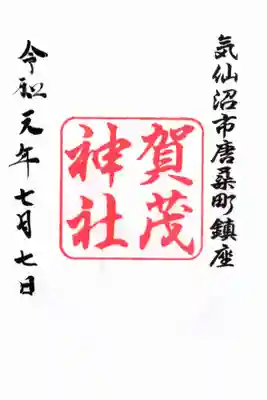 気仙沼市唐桑町鎮座
賀茂
神社
令和元年七月七日